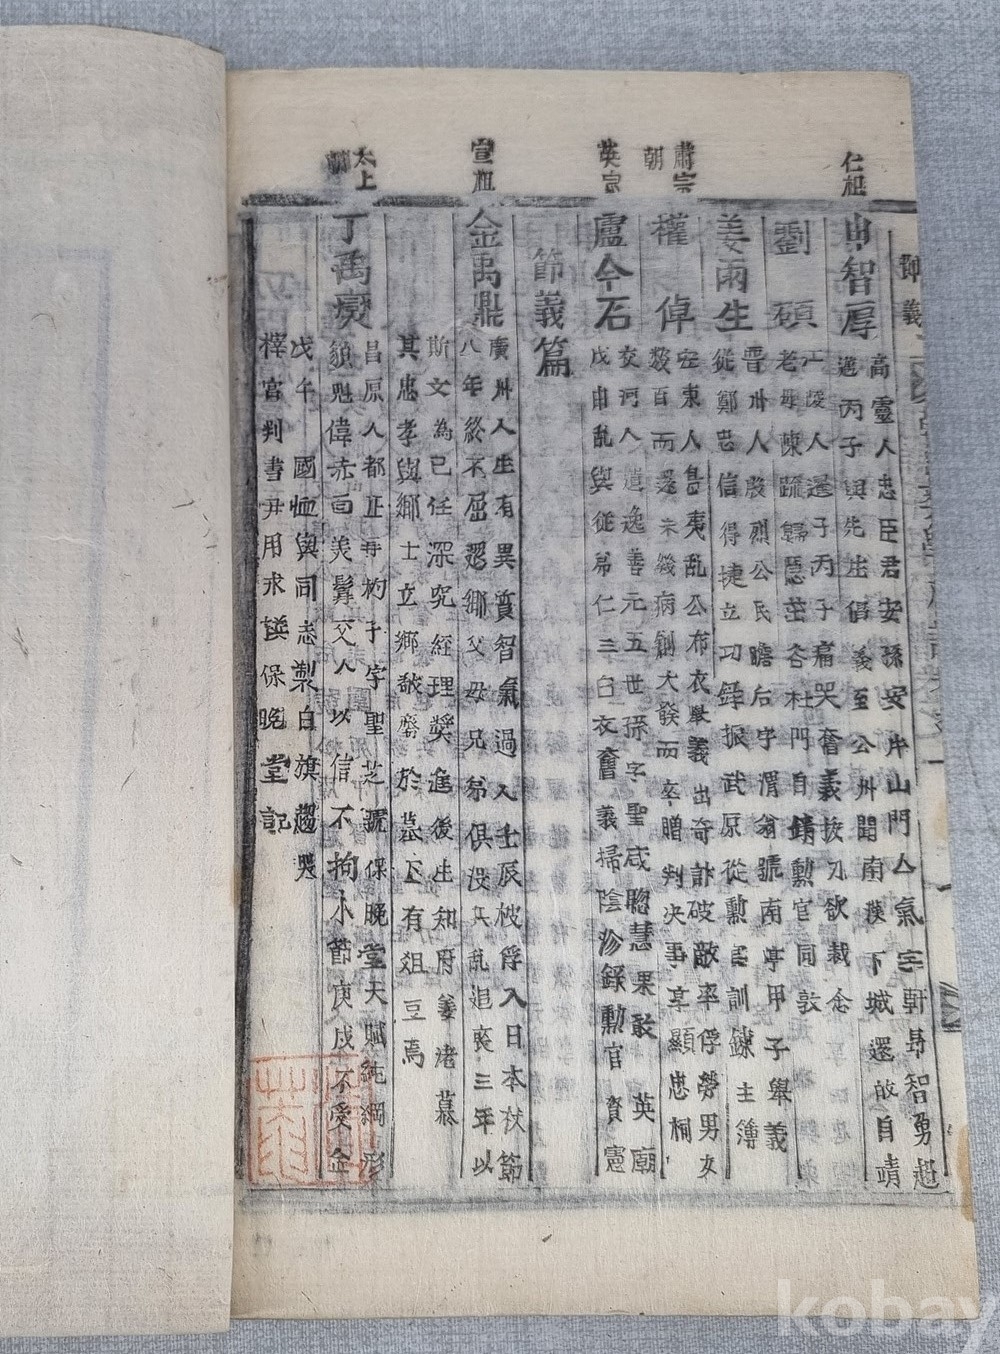 仁祖
申智厚
高靈人忠臣君安孫安片山門人氣宇軒昻智勇超
邁丙子與先生倡義至公州聞南漢下城還故自靖
劉碩
江陵人進子丙子痛哭奮義拔刀欲裁念
老母陳疏歸隱茫谷杜門自靖勳官同敦
姜雨生
晋州人殷烈公民瞻后字渭翁號南亭甲子舉義
從鄭忠信得捷立功錄振武原從勳官訓鍊主簿
肅宗
朝
權倬
安東人島夷亂公布衣擧義出奇計破敵率俘勞男女
數百而還未幾病創大發而卒贈判決事享顯忠祠
英宗
盧今石
交河人道逸善元五世孫字聖咸聰慧果敢 英廟
戊申亂與從弟仁三白衣奮義掃陰沴錄勳官資憲
節義篇
宣祖
金禹鼎
廣州人生有異質智氣過人壬辰被俘入日本杖節
八年終不屈還鄉父母兄弟俱沒六亂追喪三年以
斯文為己任深究經理奬進後生知府姜渚慕
其忠孝與鄉士立鄉
於墓下有俎豆焉
太上
朝
丁禹燮
昌原人都正
子字聖芝號保晚堂天賦純綱形
貌魁偉赤面美髯丈人以信不拘小節庚戌不受金
戊午 國恤與同志製白旗趨哭
梓宮判書尹用求
保晚堂記